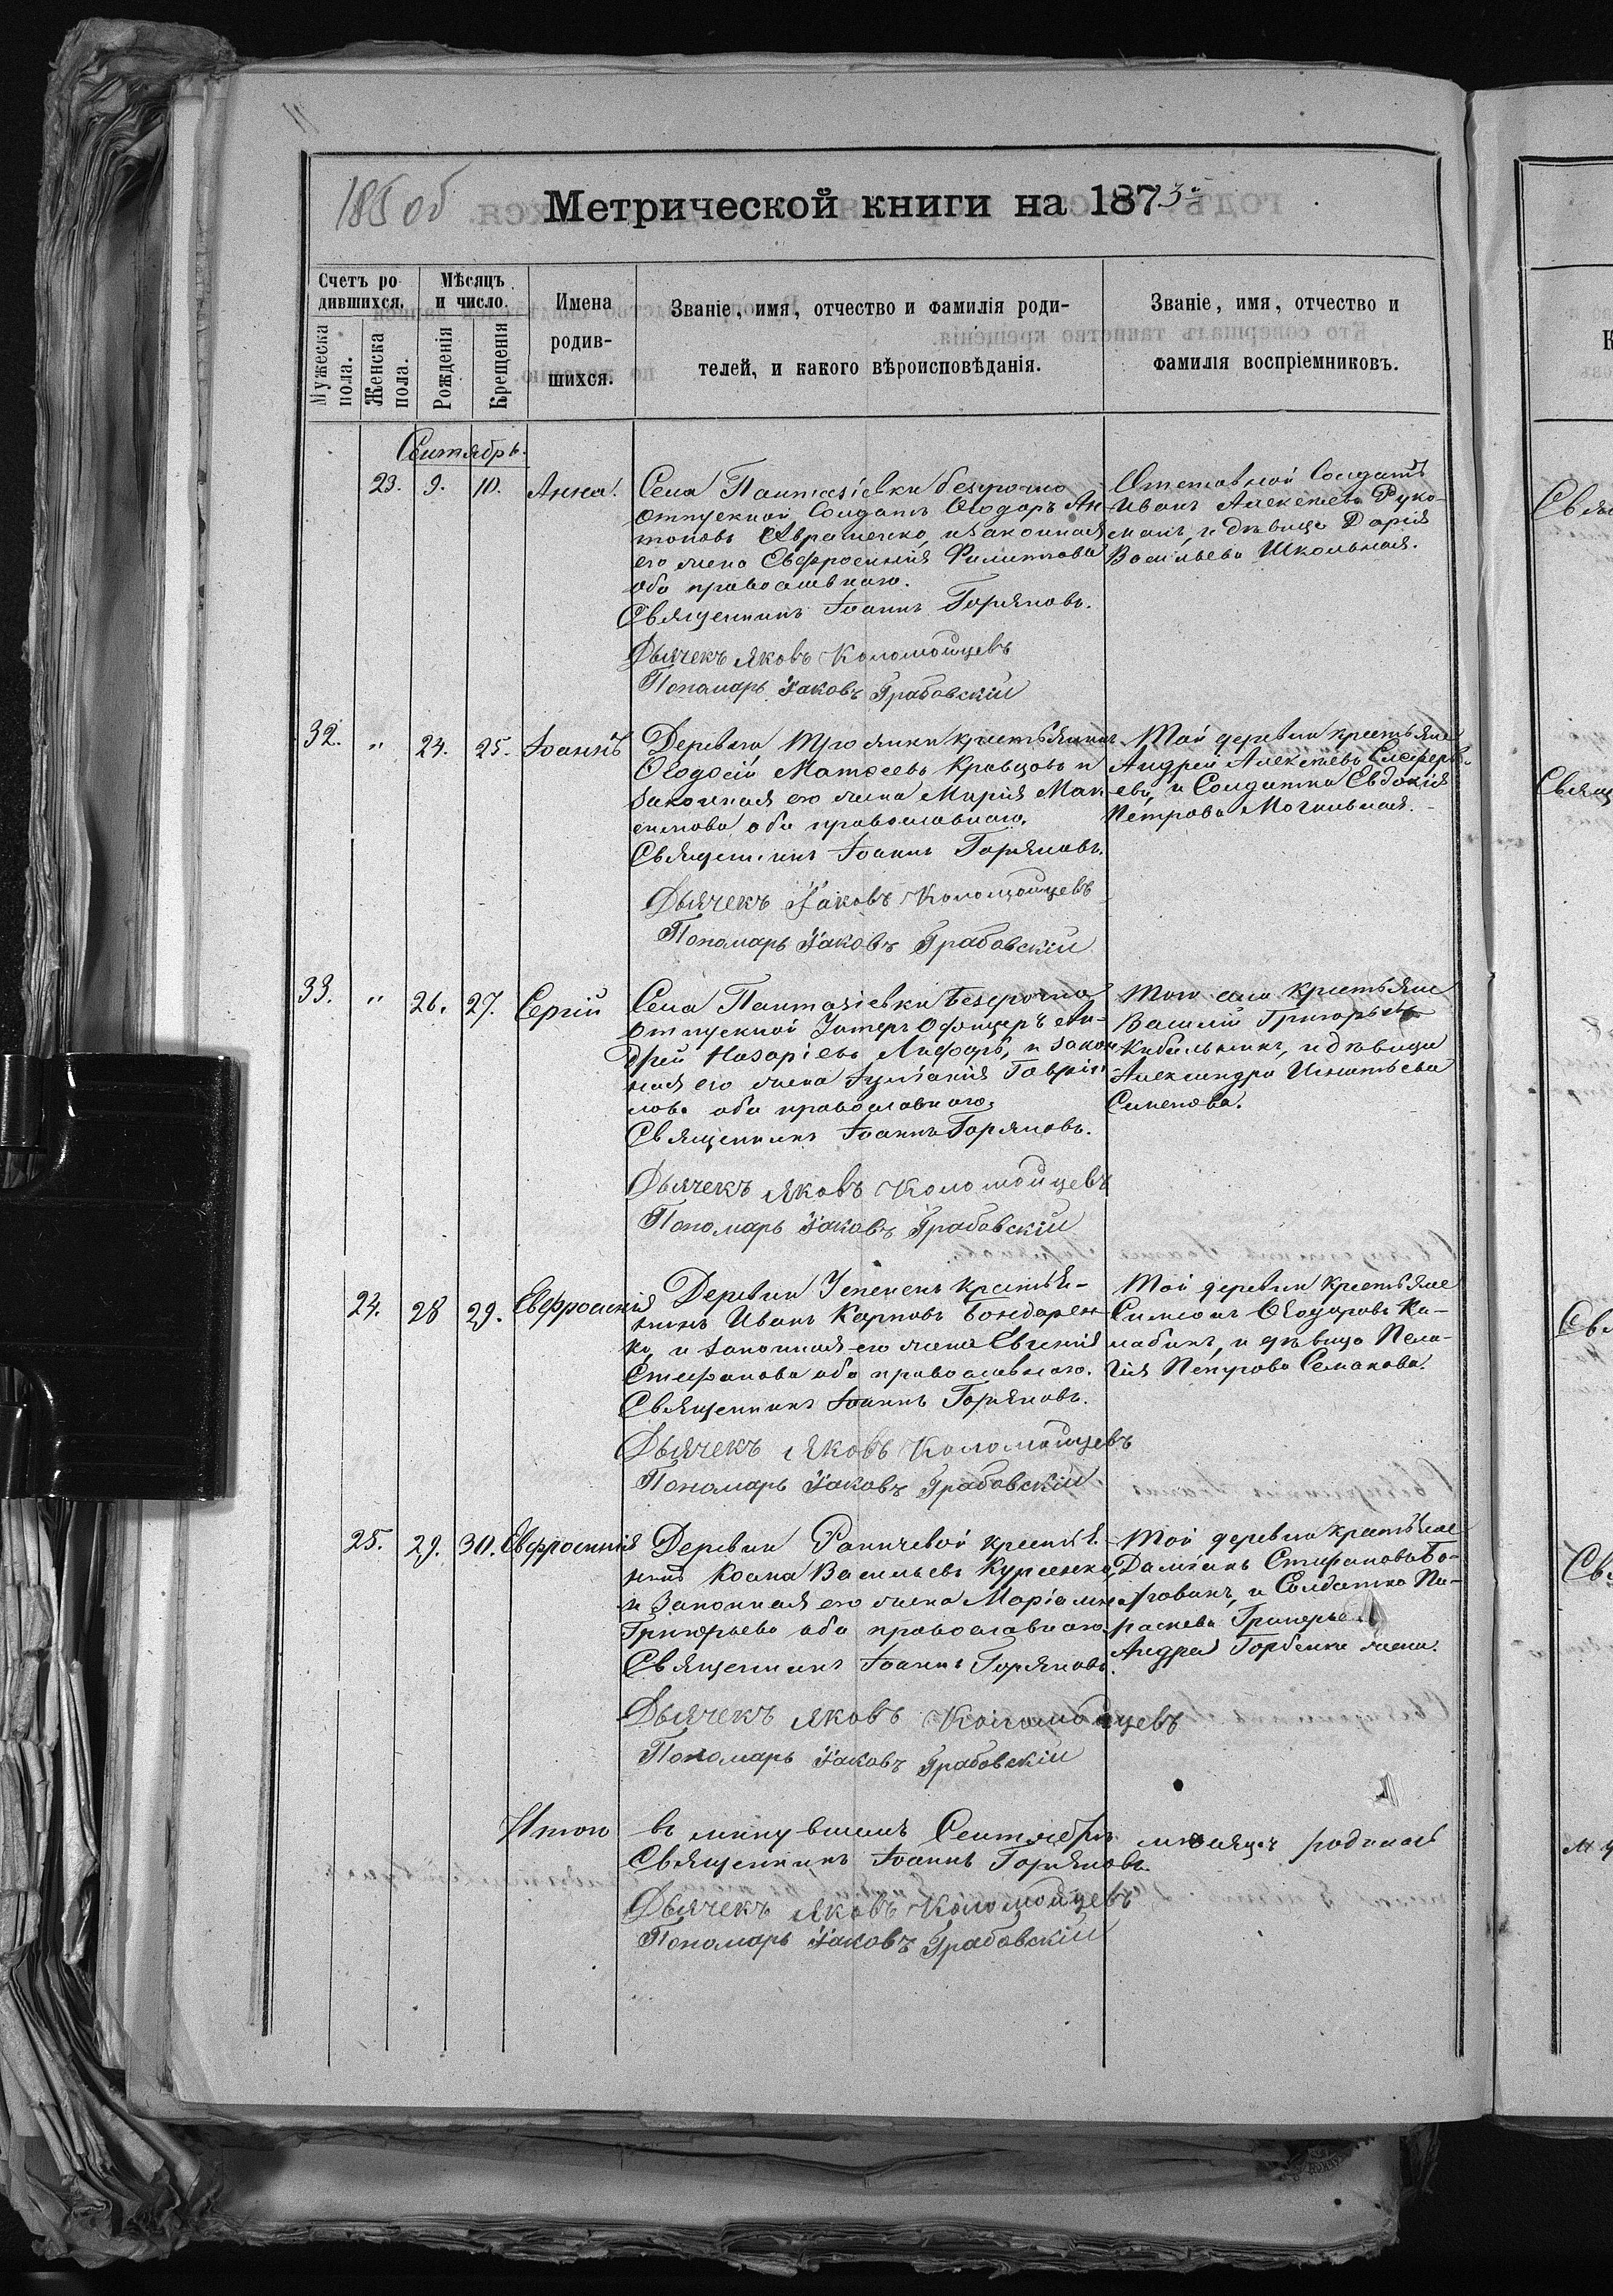 185 об
Метрической книги на 1873
Счетъ ро-
дившихся.
Мѣсяцъ
и число.
Мужеска
пола.
Женска
пола.
Рожденія
Крещенія
Имена
родив-
шихся.
Званіе, имя, отчество и фамилія роди-
телей, и какого вѣроисповѣданія.
Званіе, имя, отчество и
фамилія воспріемниковъ.
Сентябрь.
23. 9. 10. Анна.
Села Пантазіевки безсрочно
отпускной Солдатъ Ѳеодоръ Ан-
тоновъ Аврашенко, и законная
его жена Евфросинія Филиппова
оба православнаго.
Священникъ Іоаннъ Горяновъ.
Дьячекъ Яковъ Коломойцевъ
Пономарь Іаковъ Грабовскій
Отставной Солдатъ
Иванъ Алексѣевъ Руко-
манъ, и дѣвица Дарія
Васильева Школьная.
32. " 24. 25. Іоаннъ
Деревни крестьянинъ
Ѳеодосій Матѳеевъ Кравцовъ и
законная его жена Марія Мак-
симова оба православнаго.
Священникъ Іоаннъ Горяновъ.
Дьячекъ Іаковъ Коломойцевъ
Пономарь Іаковъ Грабовскій
Той деревни крестьяне
Андрей Алексѣевъ
и Солдатка Евдокія
Петрова Могильная.
33. " 26. 27. Сергій
Села Пантазіевки безсрочно
отпускной Унтеръ Офицеръ Ан-
дрей Назаріевъ Лифарь, и закон
ная его жена Іуліанія Гаврі
лова оба православнаго.
Священникъ Іоаннъ Горяновъ.
Дьячекъ Яковъ Коломойцевъ
Пономарь Іаковъ Грабовскій
Того села крестьяне
Василій Григорьевъ
Кибальникъ, и дѣвица
Александра Игнатьева
Сименова.
24. 28 29. Евфросинія
Деревни крестья-
нинъ Иванъ Карповъ Бондарен-
ко, и законная его жена Евгенія
Стефанова оба православнаго.
Священникъ Іоаннъ Горяновъ.
Дьячекъ Яковъ Коломойцевъ
Пономарь Іаковъ Грабовскій
Той деревни крестьяне
Симеонъ Ѳеодоровъ Ка-
лабинъ, и дѣвица Пела-
гія Петрова Семакова.
25. 29. 30. Евфросинія
Деревни крестья
нинъ Косма Васильевъ Курсенко,
и законная его жена Маріамна
Григорьева оба православнаго.
Священникъ Іоаннъ Горяновъ.
Дьячекъ Яковъ Коломойцевъ
Пономарь Іаковъ Грабовскій
Той деревни крестьяне
Даміанъ Стефановъ
и Солдатка Па-
раскева Григорьева
Андрея Горбенка жена.
Итого въ минувшемъ Сентябрѣ мѣсяцѣ родилось
Священникъ Іоаннъ Горяновъ.
Дьячекъ Яковъ Коломойцевъ
Пономарь Іаковъ Грабовскій